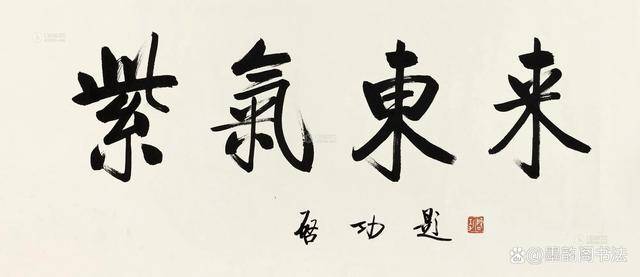 紫氣東来
启功题
墨韵阁书法